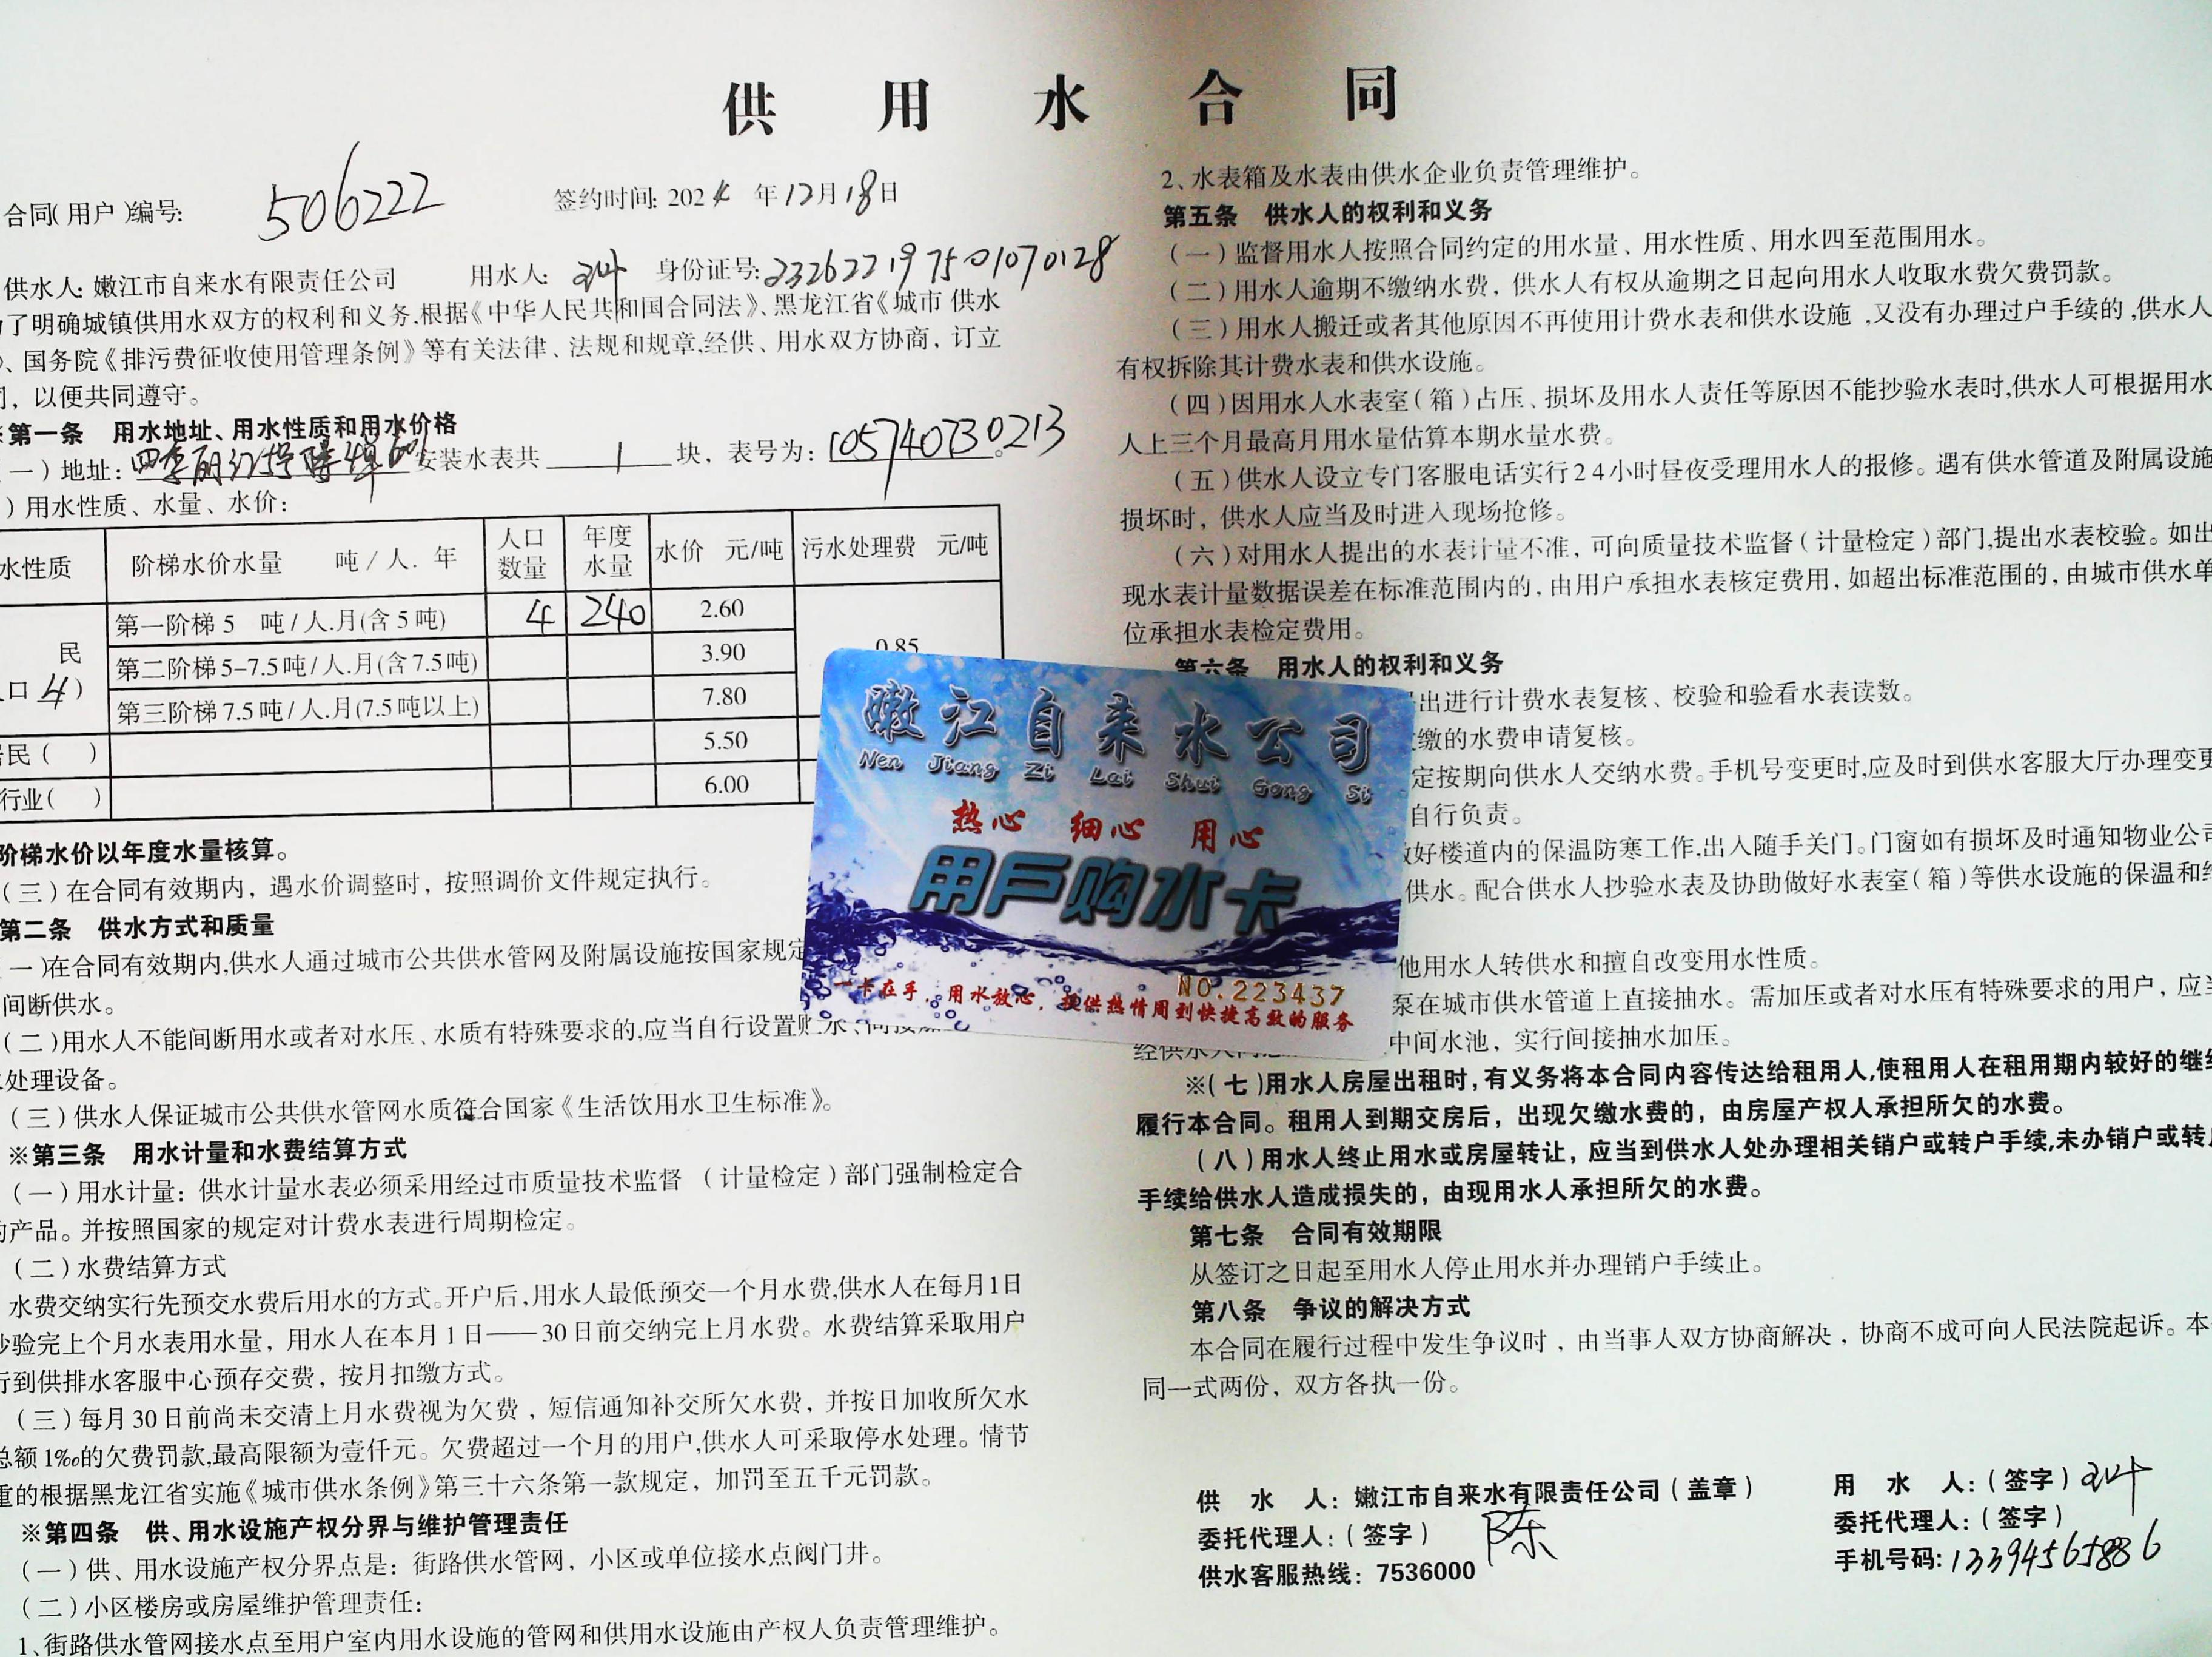 供 用 水 合 同
合同(用户)编号: 506222
签约时间: 2024 年12月18日
供水人: 嫩江市自来水有限责任公司 用水人: 身份证号: 232622197501070128
了明确城镇供用水双方的权利和义务.根据《中华人民共和国合同法》、黑龙江省《城市 供水
》、国务院《排污费征收使用管理条例》等有关法律、法规和规章,经供、用水双方协商，订立
，以便共同遵守。
※第一条 用水地址、用水性质和用水价格
一)地址: 四季 安装水表共 1 块，表号为: 105740730213。
)用水性质、水量、水价:
水性质 阶梯水价水量 吨/人. 年 人口数量 年度水量 水价 元/吨 污水处理费 元/吨
民 第一阶梯 5 吨/人.月(含5吨) 4 240 2.60 0.85
口 4) 第二阶梯 5-7.5吨/人.月(含7.5吨) 3.90
第三阶梯 7.5吨/人.月(7.5吨以上) 7.80
民( ) 5.50
行业( ) 6.00
阶梯水价以年度水量核算。
(三)在合同有效期内，遇水价调整时，按照调价文件规定执行。
第二条 供水方式和质量
一)在合同有效期内,供水人通过城市公共供水管网及附属设施按国家规定
间断供水。
(二)用水人不能间断用水或者对水压、水质有特殊要求的,应当自行设置贮水、间接
处理设备。
(三)供水人保证城市公共供水管网水质符合国家《生活饮用水卫生标准》。
※第三条 用水计量和水费结算方式
(一)用水计量：供水计量水表必须采用经过市质量技术监督 (计量检定)部门强制检定合
的产品。并按照国家的规定对计费水表进行周期检定。
(二)水费结算方式
水费交纳实行先预交水费后用水的方式。开户后,用水人最低预交一个月水费,供水人在每月1日
抄验完上个月水表用水量，用水人在本月1日——30日前交纳完上月水费。水费结算采取用户
行到供排水客服中心预存交费，按月扣缴方式。
(三)每月30日前尚未交清上月水费视为欠费，短信通知补交所欠水费，并按日加收所欠水
总额1‰的欠费罚款,最高限额为壹仟元。欠费超过一个月的用户,供水人可采取停水处理。情节
重的根据黑龙江省实施《城市供水条例》第三十六条第一款规定，加罚至五千元罚款。
※第四条 供、用水设施产权分界与维护管理责任
(一)供、用水设施产权分界点是：街路供水管网，小区或单位接水点阀门井。
(二)小区楼房或房屋维护管理责任:
1、街路供水管网接水点至用户室内用水设施的管网和供用水设施由产权人负责管理维护。
2、水表箱及水表由供水企业负责管理维护。
第五条 供水人的权利和义务
(一)监督用水人按照合同约定的用水量、用水性质、用水四至范围用水。
(二)用水人逾期不缴纳水费，供水人有权从逾期之日起向用水人收取水费欠费罚款。
(三)用水人搬迁或者其他原因不再使用计费水表和供水设施,又没有办理过户手续的,供水人
有权拆除其计费水表和供水设施。
(四)因用水人水表室(箱)占压、损坏及用水人责任等原因不能抄验水表时,供水人可根据用水
人上三个月最高月用水量估算本期水量水费。
(五)供水人设立专门客服电话实行24小时昼夜受理用水人的报修。遇有供水管道及附属设施
损坏时，供水人应当及时进入现场抢修。
(六)对用水人提出的水表计量不准，可向质量技术监督(计量检定)部门,提出水表校验。如出
现水表计量数据误差在标准范围内的，由用户承担水表核定费用，如超出标准范围的，由城市供水单
位承担水表检定费用。
第六条 用水人的权利和义务
出进行计费水表复核、校验和验看水表读数。
缴的水费申请复核。
定按期向供水人交纳水费。手机号变更时,应及时到供水客服大厅办理变更
自行负责。
好楼道内的保温防寒工作,出入随手关门。门窗如有损坏及时通知物业公司
供水。配合供水人抄验水表及协助做好水表室(箱)等供水设施的保温和
他用水人转供水和擅自改变用水性质。
泵在城市供水管道上直接抽水。需加压或者对水压有特殊要求的用户，应
经供水人 中间水池，实行间接抽水加压。
※(七)用水人房屋出租时，有义务将本合同内容传达给租用人,使租用人在租用期内较好的继
履行本合同。租用人到期交房后，出现欠缴水费的，由房屋产权人承担所欠的水费。
(八)用水人终止用水或房屋转让，应当到供水人处办理相关销户或转户手续,未办销户或转户
手续给供水人造成损失的，由现用水人承担所欠的水费。
第七条 合同有效期限
从签订之日起至用水人停止用水并办理销户手续止。
第八条 争议的解决方式
本合同在履行过程中发生争议时，由当事人双方协商解决，协商不成可向人民法院起诉。本
同一式两份，双方各执一份。
供 水 人: 嫩江市自来水有限责任公司(盖章)
委托代理人:(签字) 陈
供水客服热线: 7536000
用 水 人:(签字)
委托代理人:(签字)
手机号码: 13394565886
嫩江自来水公司
Nen Jiang Zi Lai Shui Gong Si
热心 细心 用心
用户购水卡
NO.223437
一卡在手，用水放心，提供热情周到快捷高效的服务